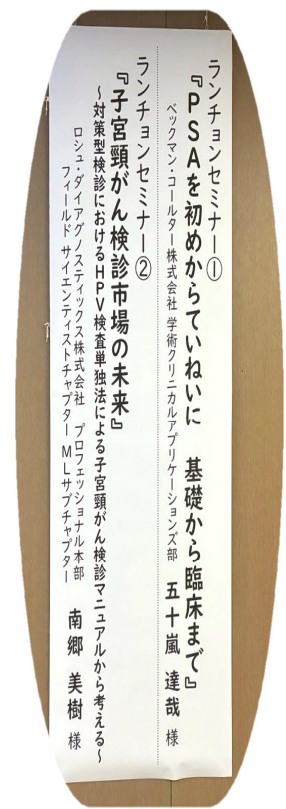 ランチョンセミナー①
『PSAを初めからていねいに　基礎から臨床まで』
ベックマン・コールター株式会社 学術クリニカルアプリケーションズ部　五十嵐 達哉 様
ランチョンセミナー②
『子宮頸がん検診市場の未来』
～対策型検診におけるHPV検査単独法による子宮頸がん検診マニュアルから考える～
ロシュ・ダイアグノスティックス株式会社　プロフェッショナル本部
フィールド サイエンティストチャプター MLサブチャプター　南郷 美樹 様